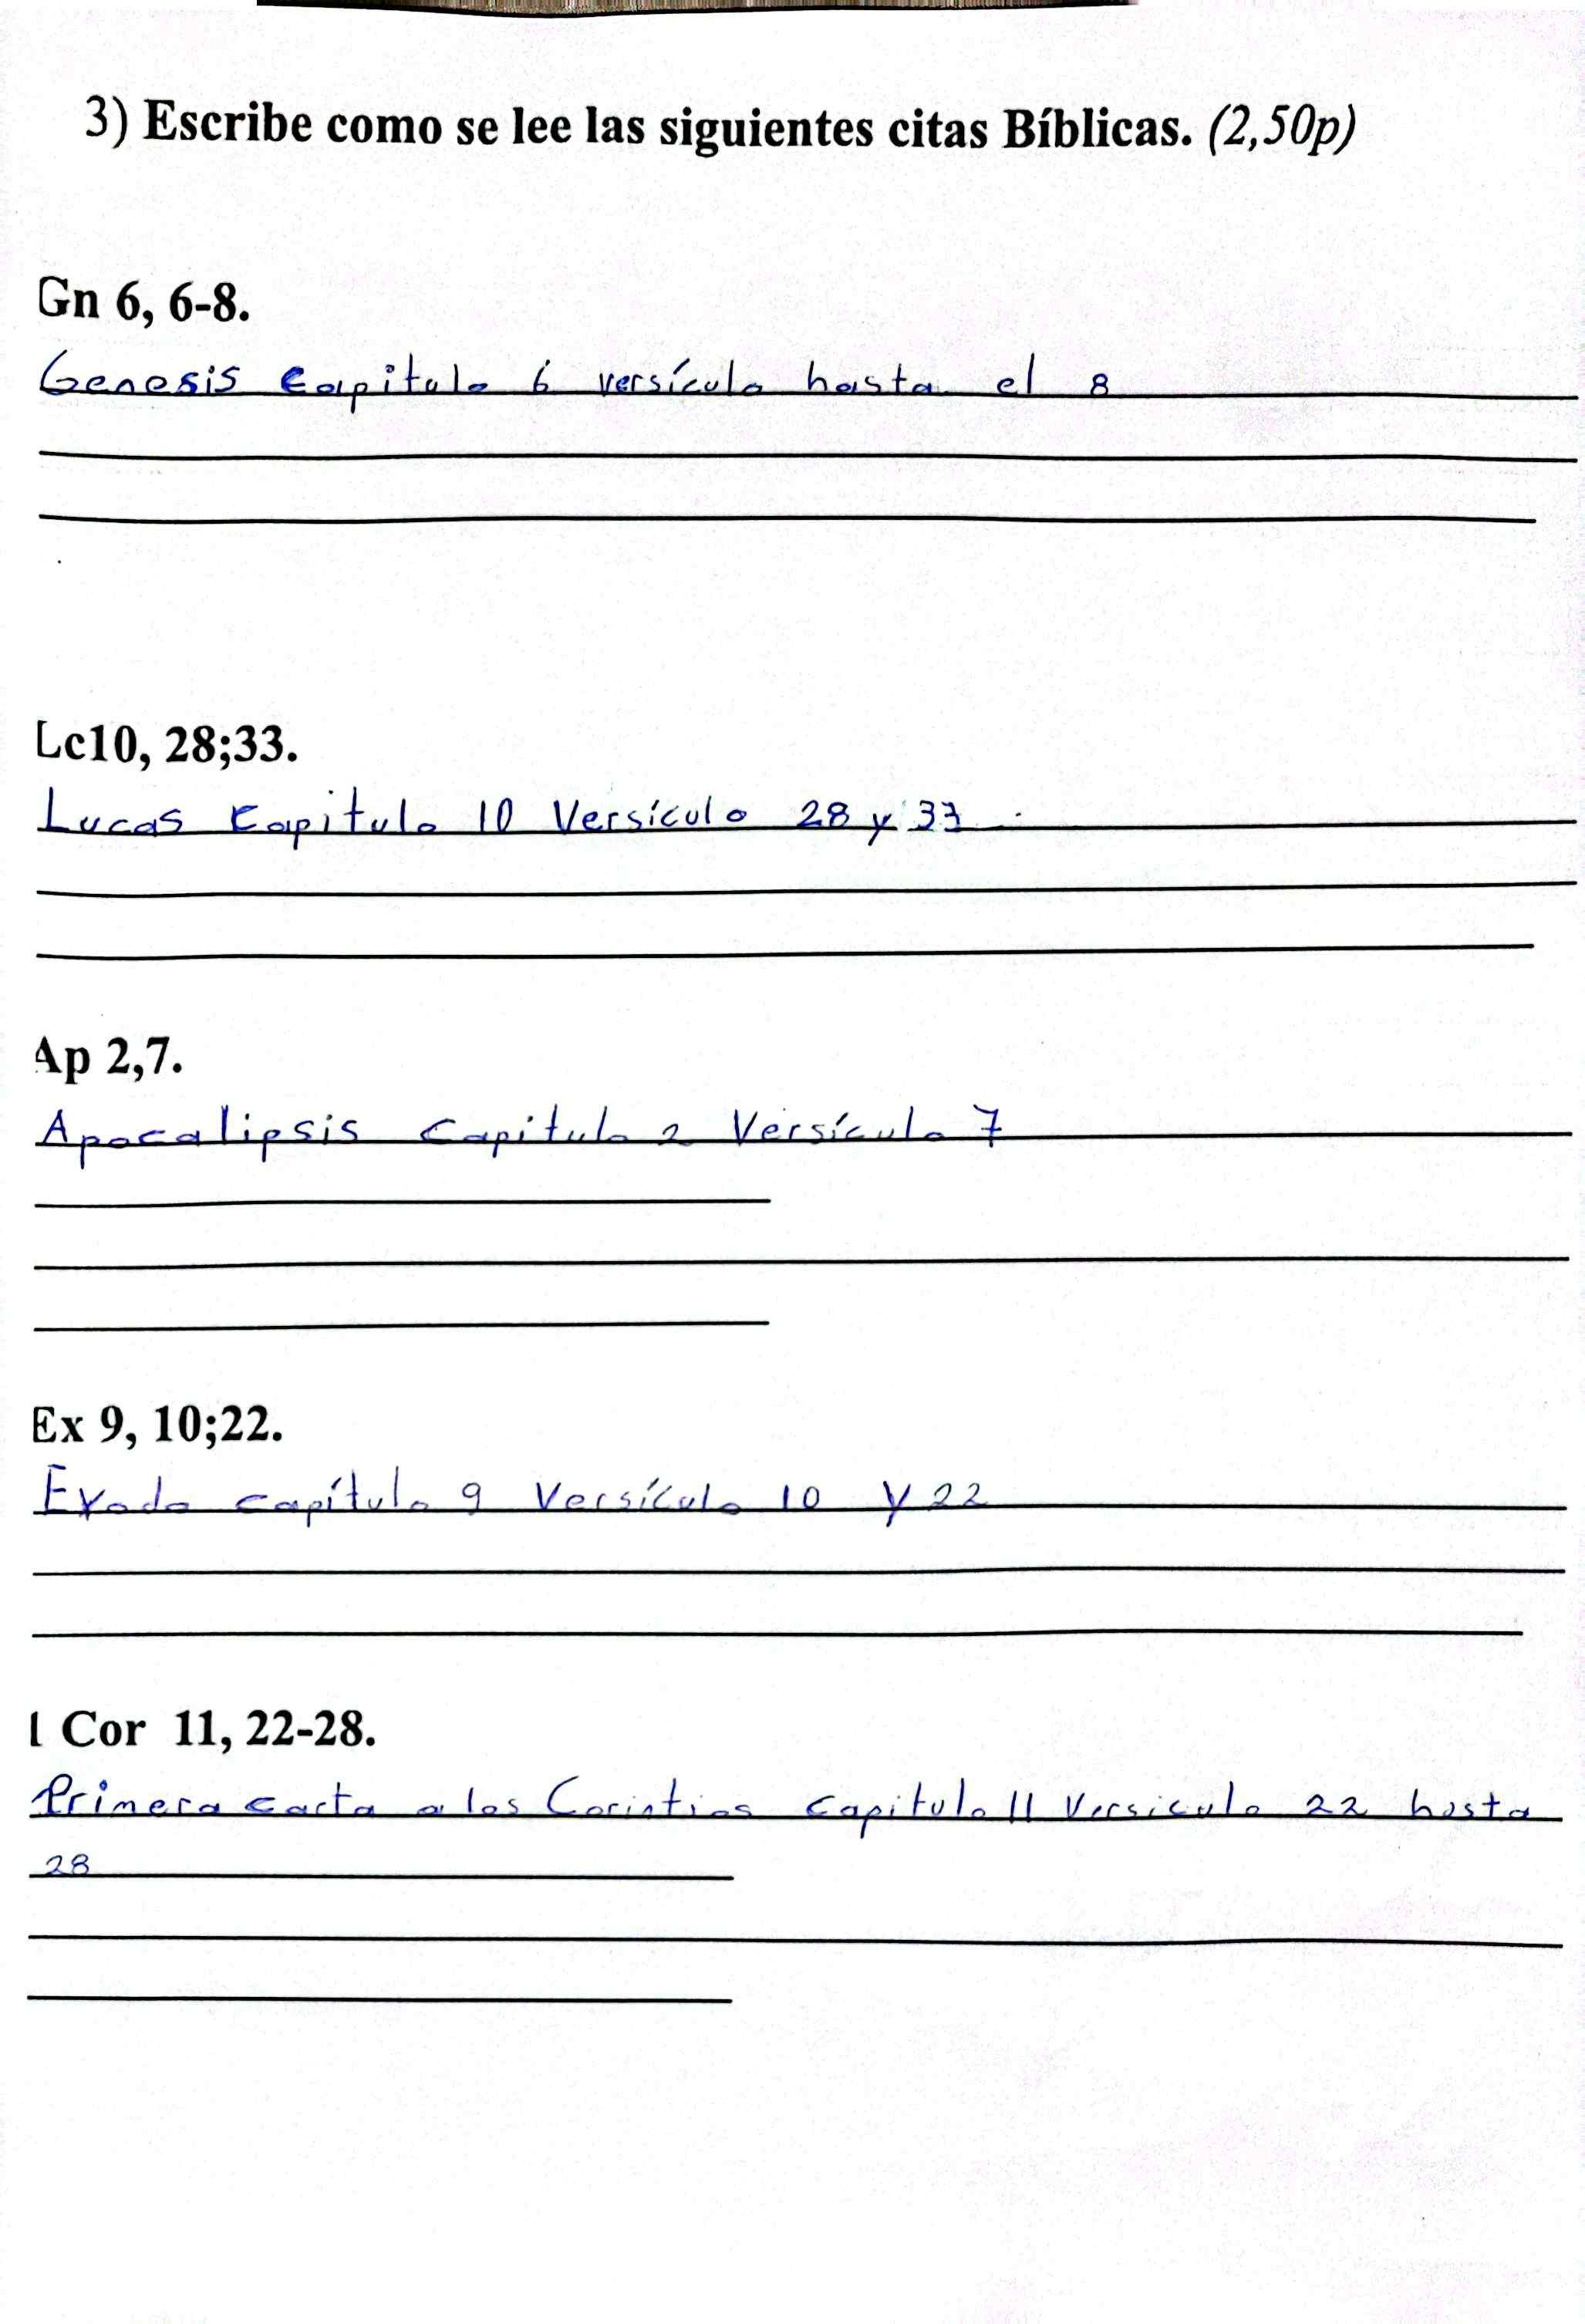 3) Escribe como se lee las siguientes citas Bíblicas. (2,50p)
Gn 6, 6-8.
Genesis capitulo 6 versículo hasta el 8
Lc10, 28;33.
Lucas capitulo 10 Versículo 28 y 33
Ap 2,7.
Apocalipsis capitulo 2 Versículo 7
Ex 9, 10;22.
Exodo capítulo 9 Versículo 10 y 22
1 Cor 11, 22-28.
Primera carta a los Corintios capitulo 11 Versiculo 22 hasta
28